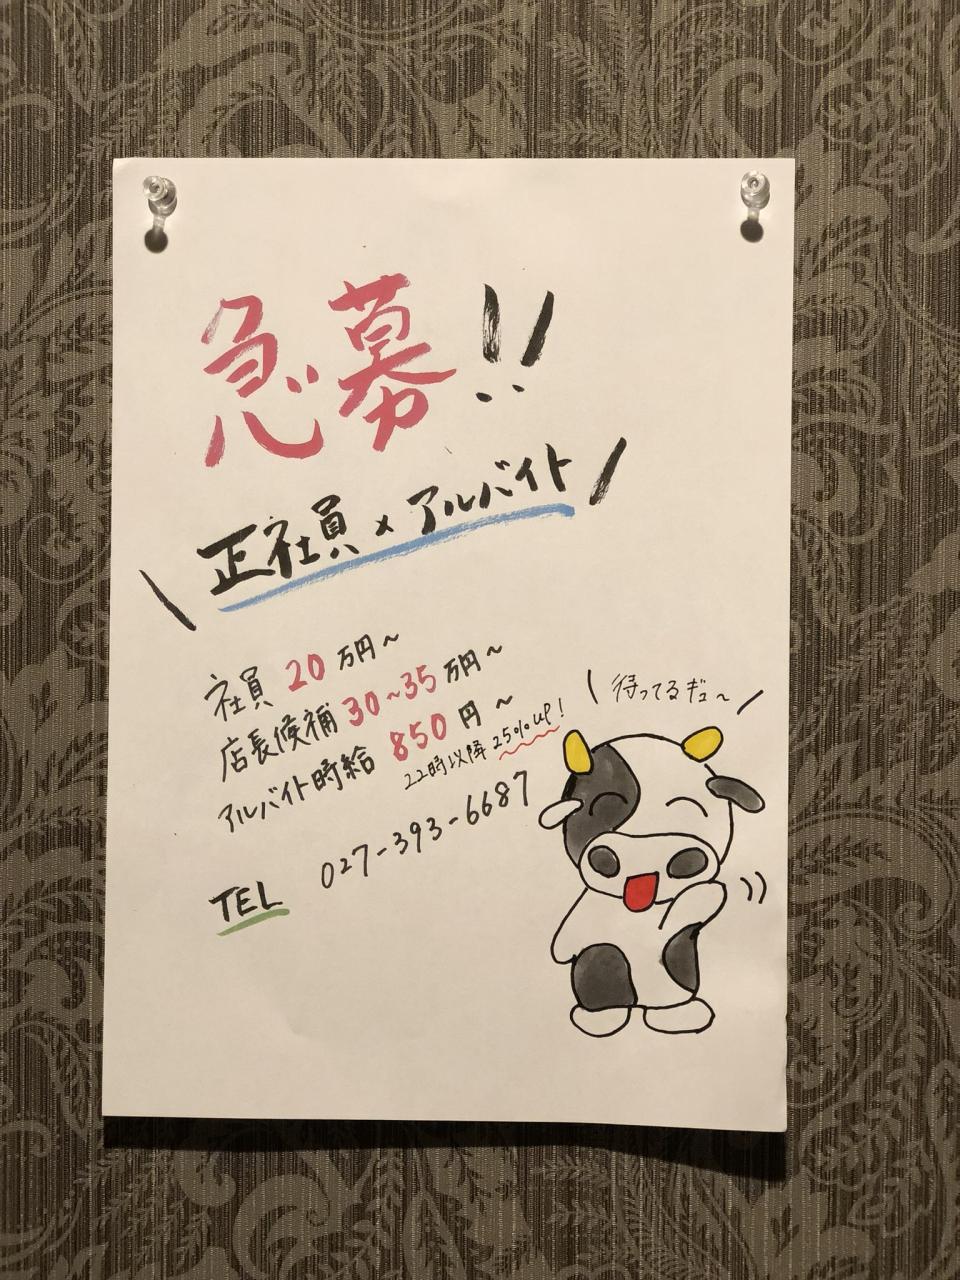 急募!!
正社員×アルバイト
社員 20万円~
店長候補 30~35万円~
アルバイト時給 850円~
22時以降 25%up!
TEL 027-393-6687
待ってるギュ~